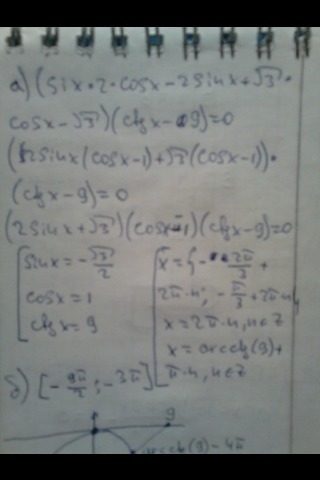 а) (sinx·2·cosx-2sinx+√3·
cosx-√3)(ctgx-9)=0
(2sinx(cosx-1)+√3(cosx-1))·
(ctgx-9)=0
(2sinx+√3)(cosx-1)(ctgx-9)=0
sinx=-√3/2
cosx=1
ctgx=9
x={-2π/3+
2π·n; -π/3+2π·n,
x=2π·n, n∈Z
x=arcctg(9)+
π·n, n∈Z
б) [-9π/2; -3π]
9
arcctg(9)-4π